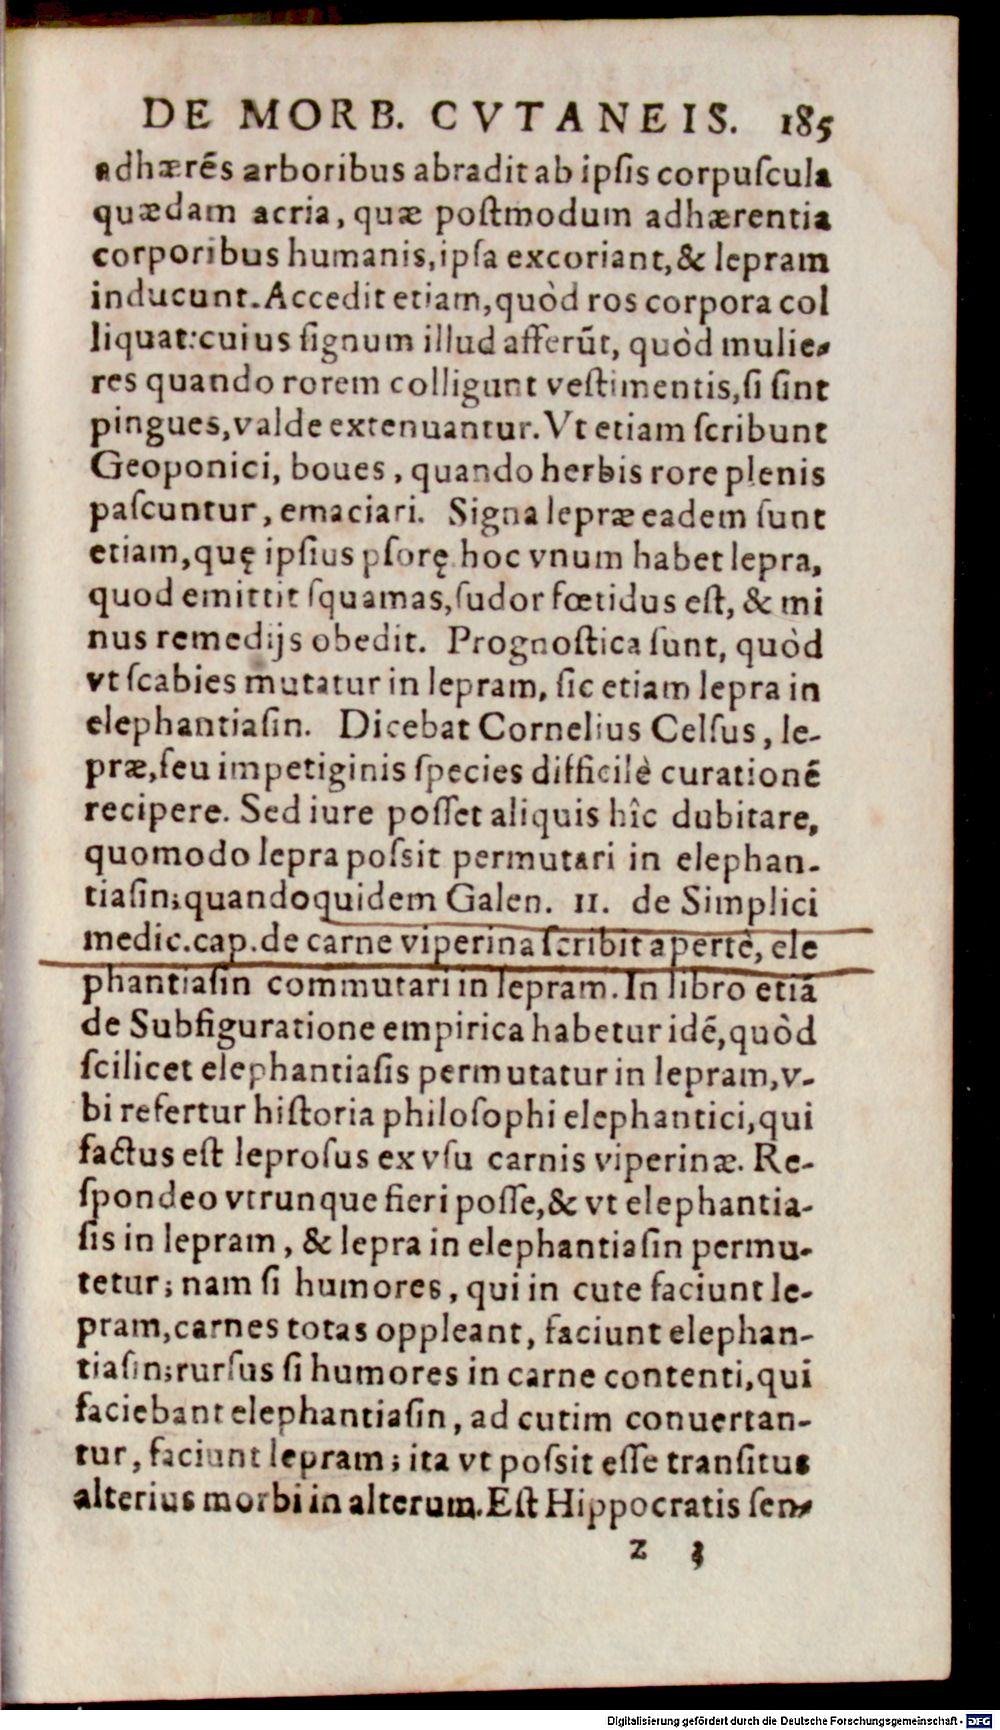 DE MORB. CVTANEIS. 185
adhærẽs arboribus abradit ab ipſis corpuſcula
quædam acria, quæ poſtmodum adhærentia
corporibus humanis, ipſa excoriant, & lepram
inducunt. Accedit etiam, quòd ros corpora col
liquat: cuius ſignum illud afferũt, quòd mulie-
res quando rorem colligunt veſtimentis, ſi ſint
pingues, valde extenuantur. Vt etiam ſcribunt
Geoponici, boues, quando herbis rore plenis
paſcuntur, emaciari. Signa lepræ eadem ſunt
etiam, quę ipſius pſorę hoc vnum habet lepra,
quod emittit ſquamas, ſudor fœtidus eſt, & mi
nus remedijs obedit. Prognoſtica ſunt, quòd
vt ſcabies mutatur in lepram, ſic etiam lepra in
elephantiaſin. Dicebat Cornelius Celſus, le-
præ, ſeu impetiginis ſpecies difficilè curationẽ
recipere. Sed iure poſſet aliquis hîc dubitare,
quomodo lepra poſsit permutari in elephan-
tiaſin; quandoquidem Galen. 11. de Simplici
medic. cap. de carne viperina ſcribit apertè, ele
phantiaſin commutari in lepram. In libro etiã
de Subfiguratione empirica habetur idẽ, quòd
ſcilicet elephantiaſis permutatur in lepram, v-
bi refertur hiſtoria philoſophi elephantici, qui
factus eſt leproſus ex vſu carnis viperinæ. Re-
ſpondeo vtrunque fieri poſſe, & vt elephantia-
ſis in lepram, & lepra in elephantiaſin permu-
tetur; nam ſi humores, qui in cute faciunt le-
pram, carnes totas oppleant, faciunt elephan-
tiaſin; rurſus ſi humores in carne contenti, qui
faciebant elephantiaſin, ad cutim conuertan-
tur, faciunt lepram; ita vt poſsit eſſe tranſitus
alterius morbi in alterum. Eſt Hippocratis ſen-
z 3
Digitalisierung gefördert durch die Deutsche Forschungsgemeinschaft - DFG